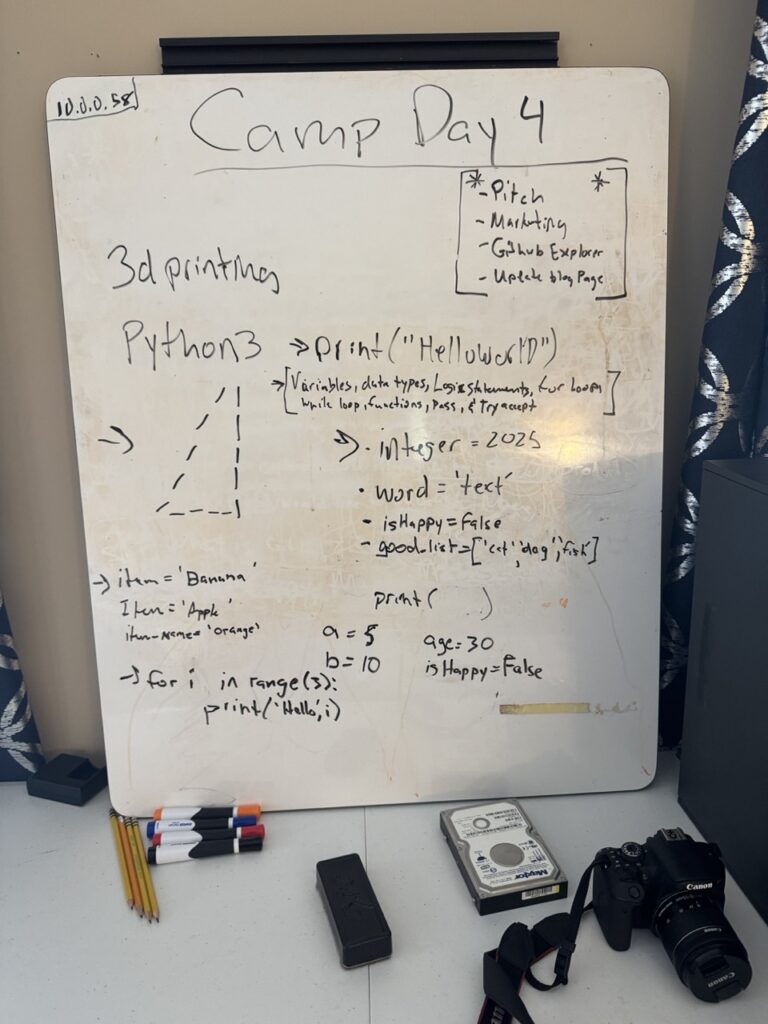 10.0.0.58
Camp Day 4
* *
- Pitch
- Marketing
- Github Explorer
- Update blog Page
3d printing
Python3 → print("HelloWorlD")
→ [Variables, data types, Logic Statements, for loops
while loop, functions, pass, & Try accept]
→
→ • integer = 2025
• word = 'text'
- isHappy = False
- good_list = ['cat','dog','fish']
→ item = 'Banana'
Item = 'Apple'
item-name = 'orange'
print( )
a = 5
b = 10
age = 30
isHappy = False
→ for i in range(3):
print('Hello',i)
Maxtor
Canon
Canon